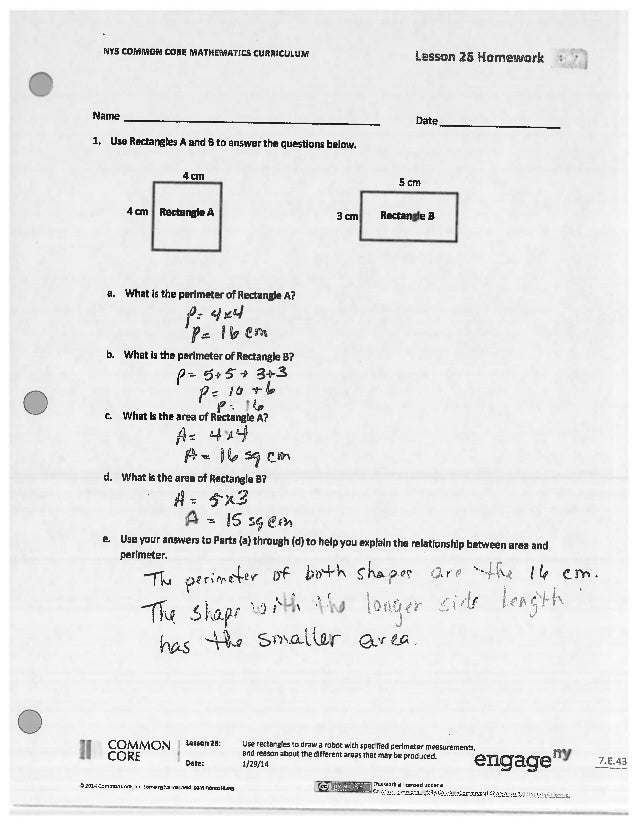 NYS COMMON CORE MATHEMATICS CURRICULUM
Lesson 26 Homework
Name
Date
1. Use Rectangles A and B to answer the questions below.
4 cm
5 cm
4 cm
Rectangle A
3 cm
Rectangle B
a. What is the perimeter of Rectangle A?
P= 4x4
P= 16 cm
b. What is the perimeter of Rectangle B?
P= 5+5+3+3
P= 10+6
P= 16
c. What is the area of Rectangle A?
A= 4x4
A= 16 sq cm
d. What is the area of Rectangle B?
A = 5x3
A = 15 sq cm
e. Use your answers to Parts (a) through (d) to help you explain the relationship between area and
perimeter.
The perimeter of both shapes are the 16 cm.
The shape with the longer side length
has the smaller area.
COMMON
CORE
Lesson 26:
Date:
Use rectangles to draw a robot with specified perimeter measurements,
and reason about the different areas that may be produced.
1/29/14
engage ny
7.E.43